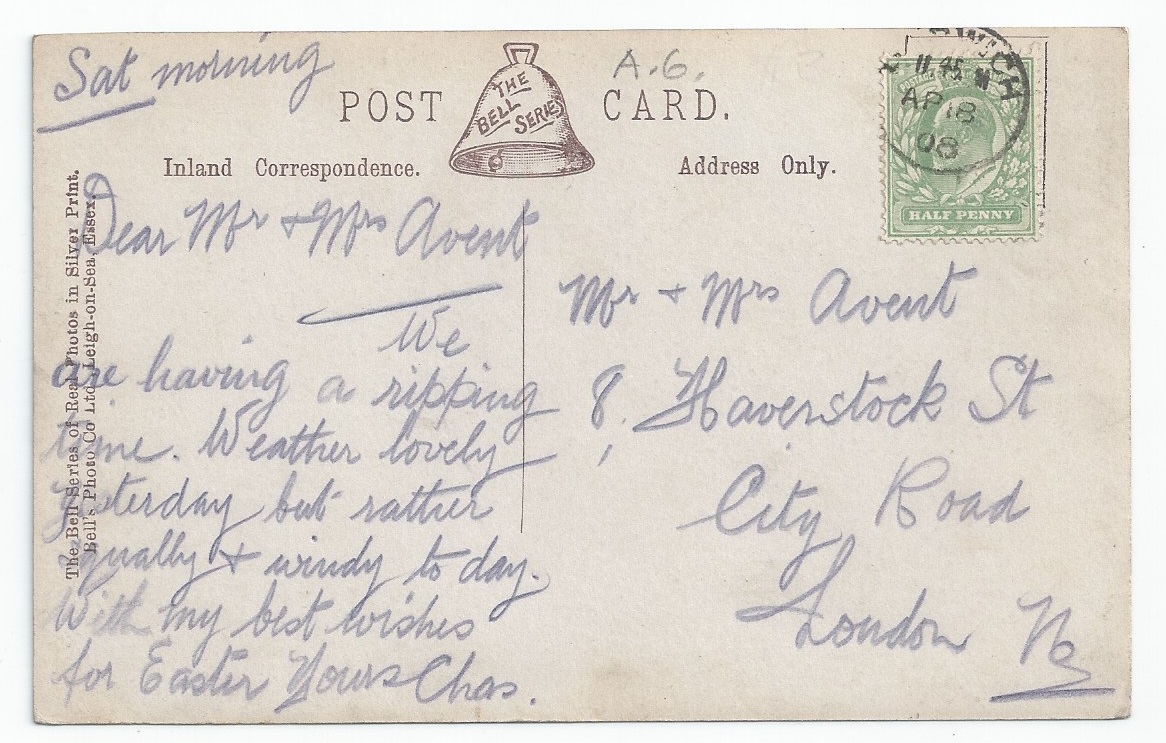 Sat morning
A.G.
POST CARD.
THE BELL SERIES
Inland Correspondence.
Address Only.
WICH
11 45
AP 18
08
HALF PENNY
The Bell Series of Real Photos in Silver Print.
Bell's Photo Co Ltd. Leigh-on-Sea, Essex.
Dear Mr & Mrs Avent
We
are having a ripping
time. Weather lovely
yesterday but rather
squally & windy to day.
With my best wishes
for Easter Yours Chas.
Mr & Mrs Avent
8, Haverstock St
City Road
London N